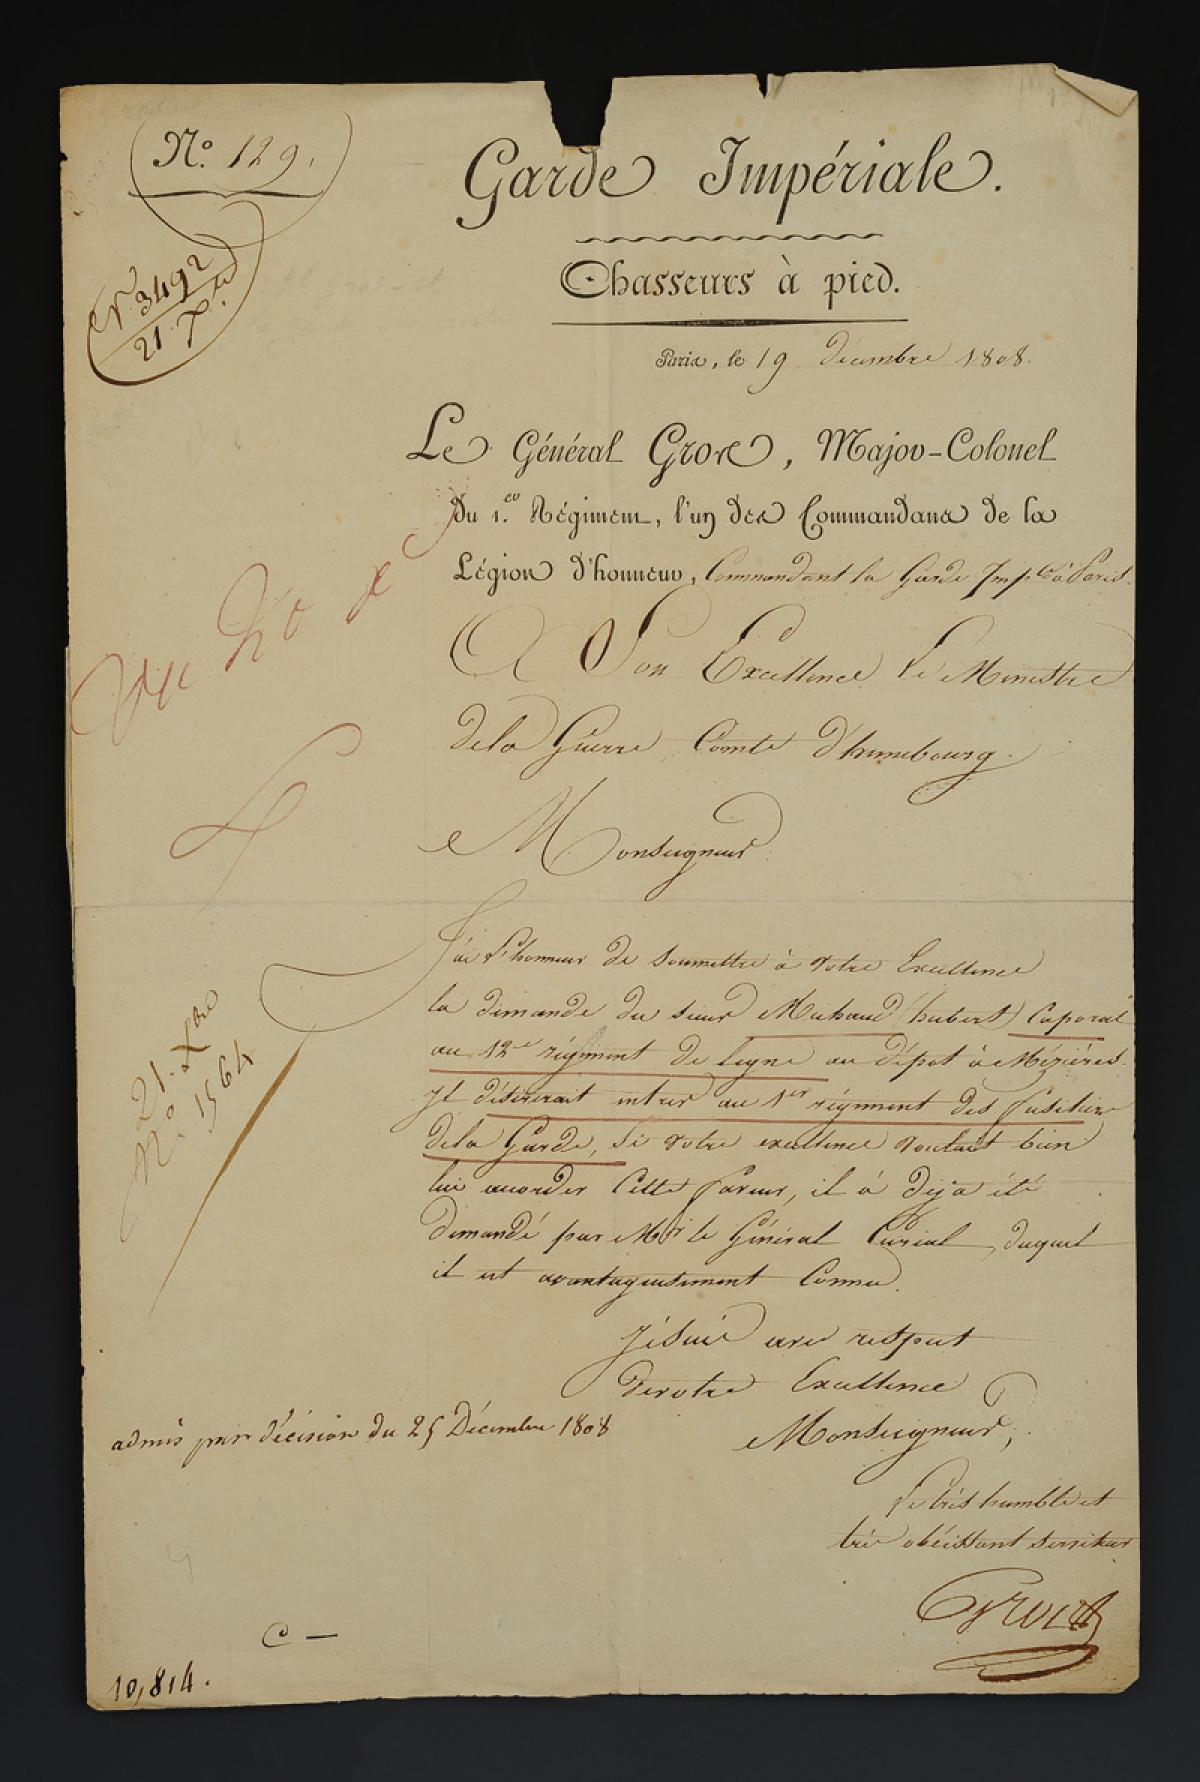 N.º 129.
N. 3492
21 Xbre
Garde Impériale.
Chasseurs à pied.
Paris, le 19 Décembre 1808.
Le Général Gros, Major-Colonel
du 1.er Régiment, l'un des Commandans de la
Légion d'honneur, Commandant la Garde Imple à Paris.
A Son Excellence Le Ministre
dela Guerre Comte d'hunebourg.
Monseigneur
J'ai l'honneur de soumettre à votre Excellence
la demande du sieur Michaud (hubert) Caporal
au 12e régiment de ligne au dépot à Mézières.
Il désirerait entrer au 1er régiment des fusiliers
dela Garde, si votre excellence voulait bien
lui accorder Cette faveur, il a déja été
demandé par Mr le Général Curial, duquel
il est avantageusement Connu.
21. Xbre
No 1564
Je suis avec respect
devotre Excellence
Monseigneur,
admis par décision du 25 Décembre 1808
Le très humble et
très obéissant serviteur
Gros
C —
10,814.